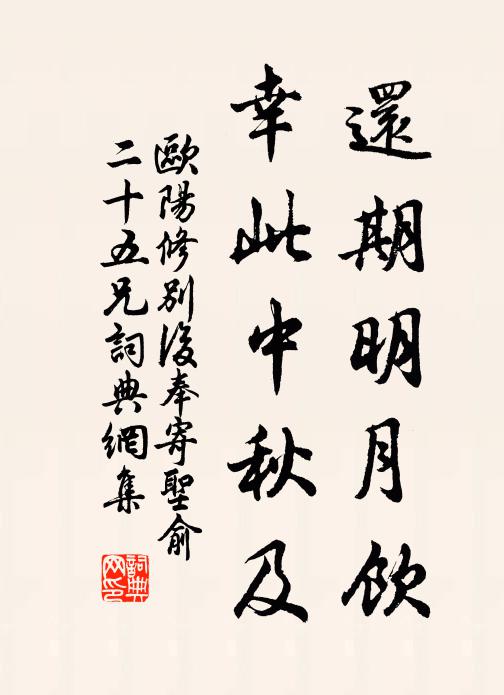 還期明月飲
幸此中秋及
歐陽修別後奉寄聖俞
二十五兄詞典網集
詞典
网印